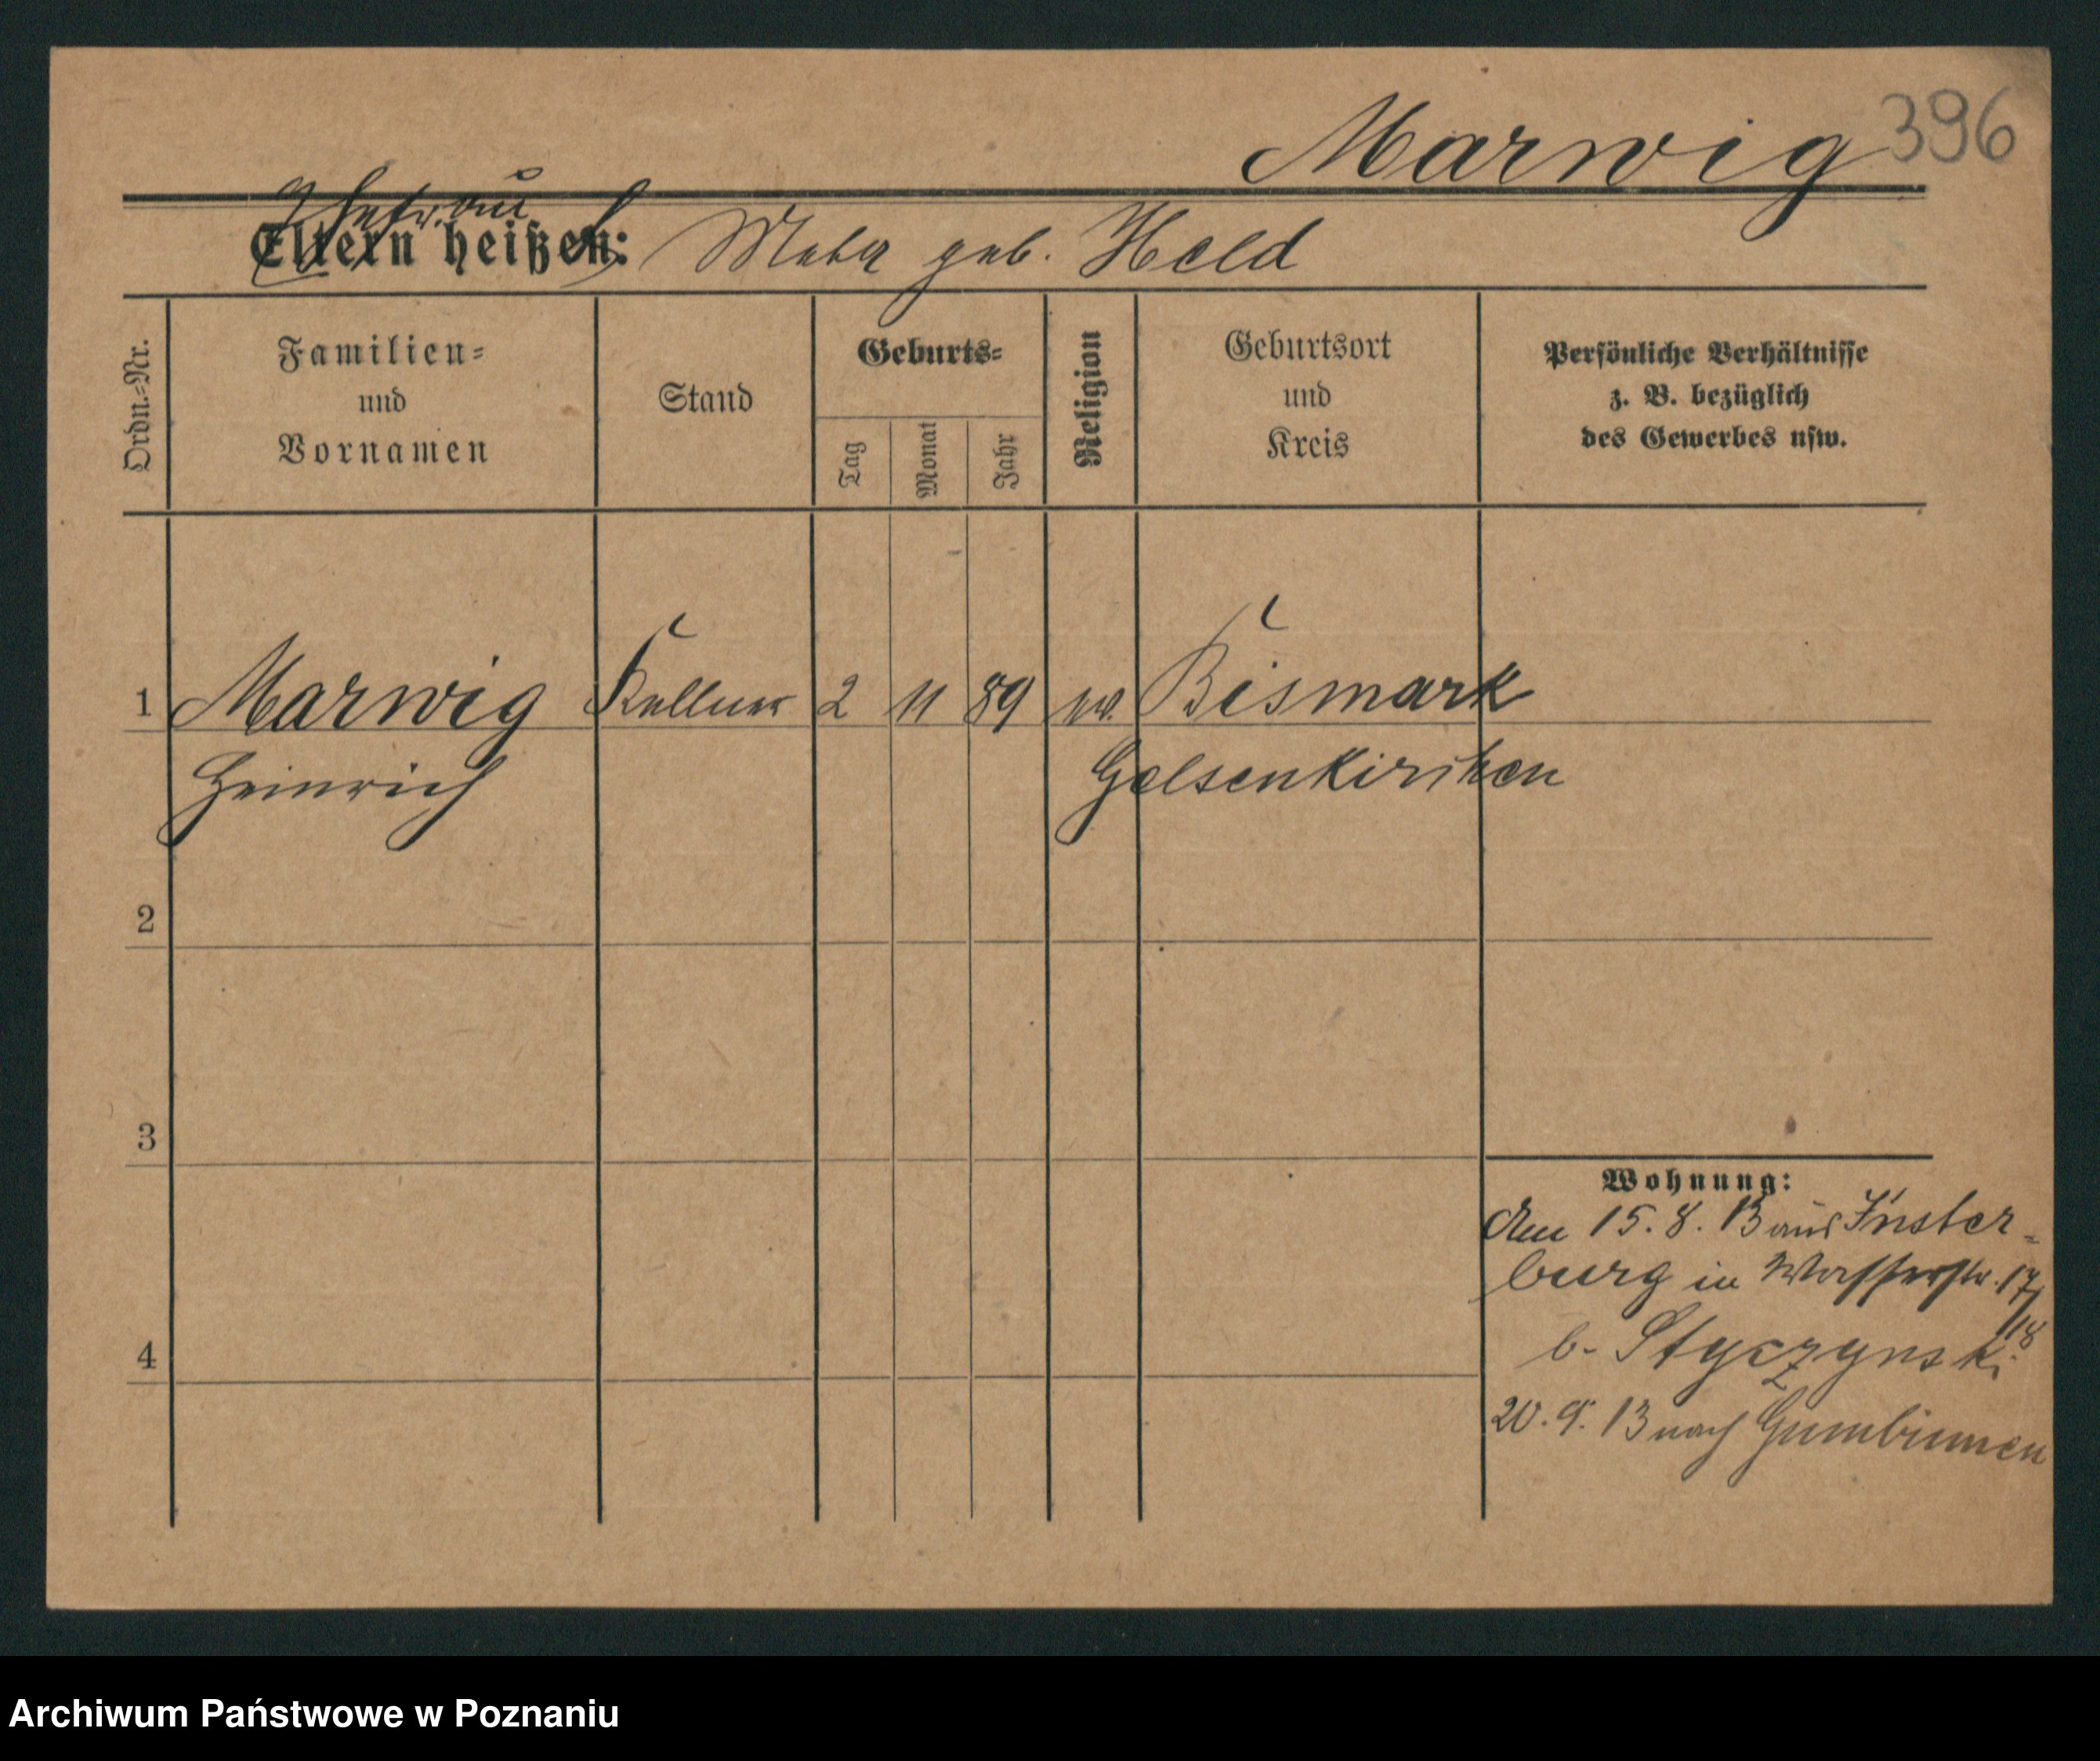 Marwig 396
Ehefrau
Eltern heißen: Meta geb. Held
Ordn.=Nr.
Familien=
und
Vornamen
Stand
Geburts=
Tag
Monat
Jahr
Religion
Geburtsort
und
Kreis
Persönliche Verhältnisse
z. B. bezüglich
des Gewerbes usw.
1 Marwig Kellner 2 11 89 ev. Bismark
Heinrich Gelsenkirchen
2
3
Wohnung:
Am 15. 8. 13 aus Inster=
burg in Wasserstr. 17/
18
b. Styczynski
4
20. 9. 13 nach Gumbinnen
Archiwum Państwowe w Poznaniu